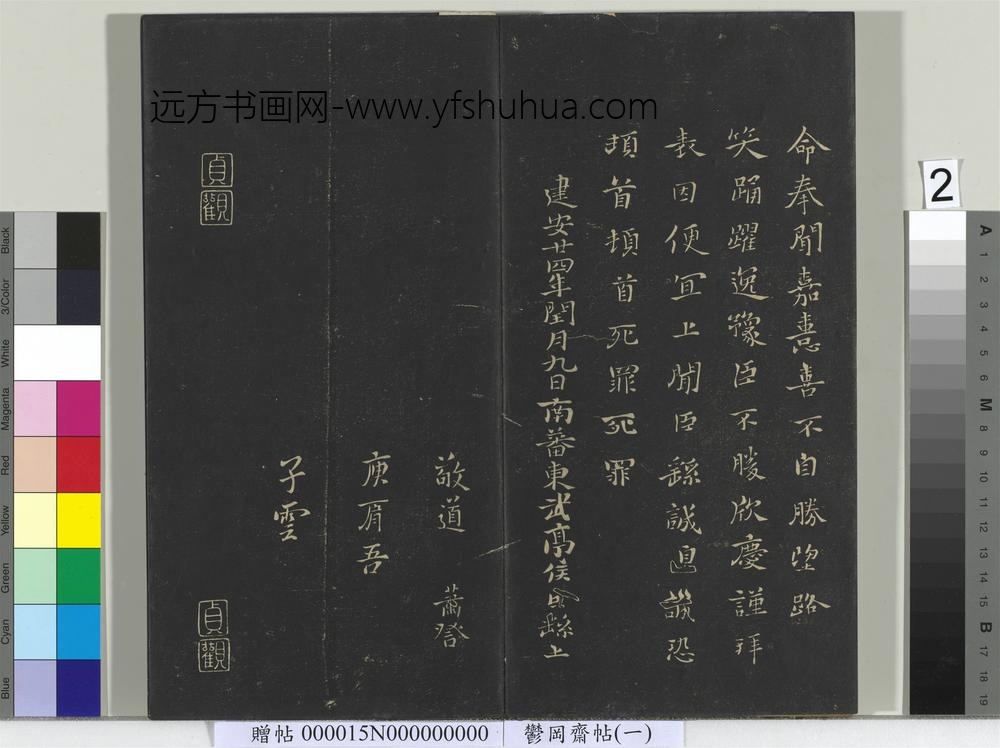 远方书画网-www.yfshuhua.com
命奉聞嘉憙喜不自勝望路
笑踊躍逸豫臣不勝欣慶謹拜
表因便宜上聞臣繇誠惶誠恐
頓首頓首死罪死罪
建安廿四年閏月九日南蕃東武亭侯臣繇上
敬道 蕭詧
庾肩吾
子雲
貞觀
貞觀
2
Black
3/Color
White
Magenta
Red
Yellow
Green
Cyan
Blue
A
1
2
3
4
5
6
M
8
9
10
11
12
13
14
15
B
17
18
19
贈帖 000015N000000000
鬱岡齋帖(一)